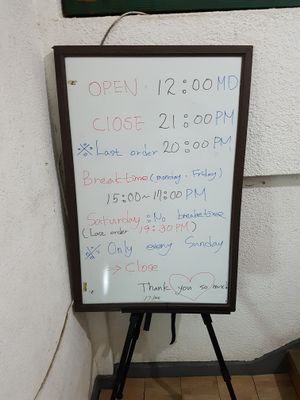 OPEN 12:00 MD
CLOSE 21:00 PM
※Last order 20:00 PM
Breaktime (monday - Friday)
15:00~17:00 PM
Saturday : No breaktime
(Last order 19:30 PM)
※ Only every Sunday
→ Close
Thank you so much